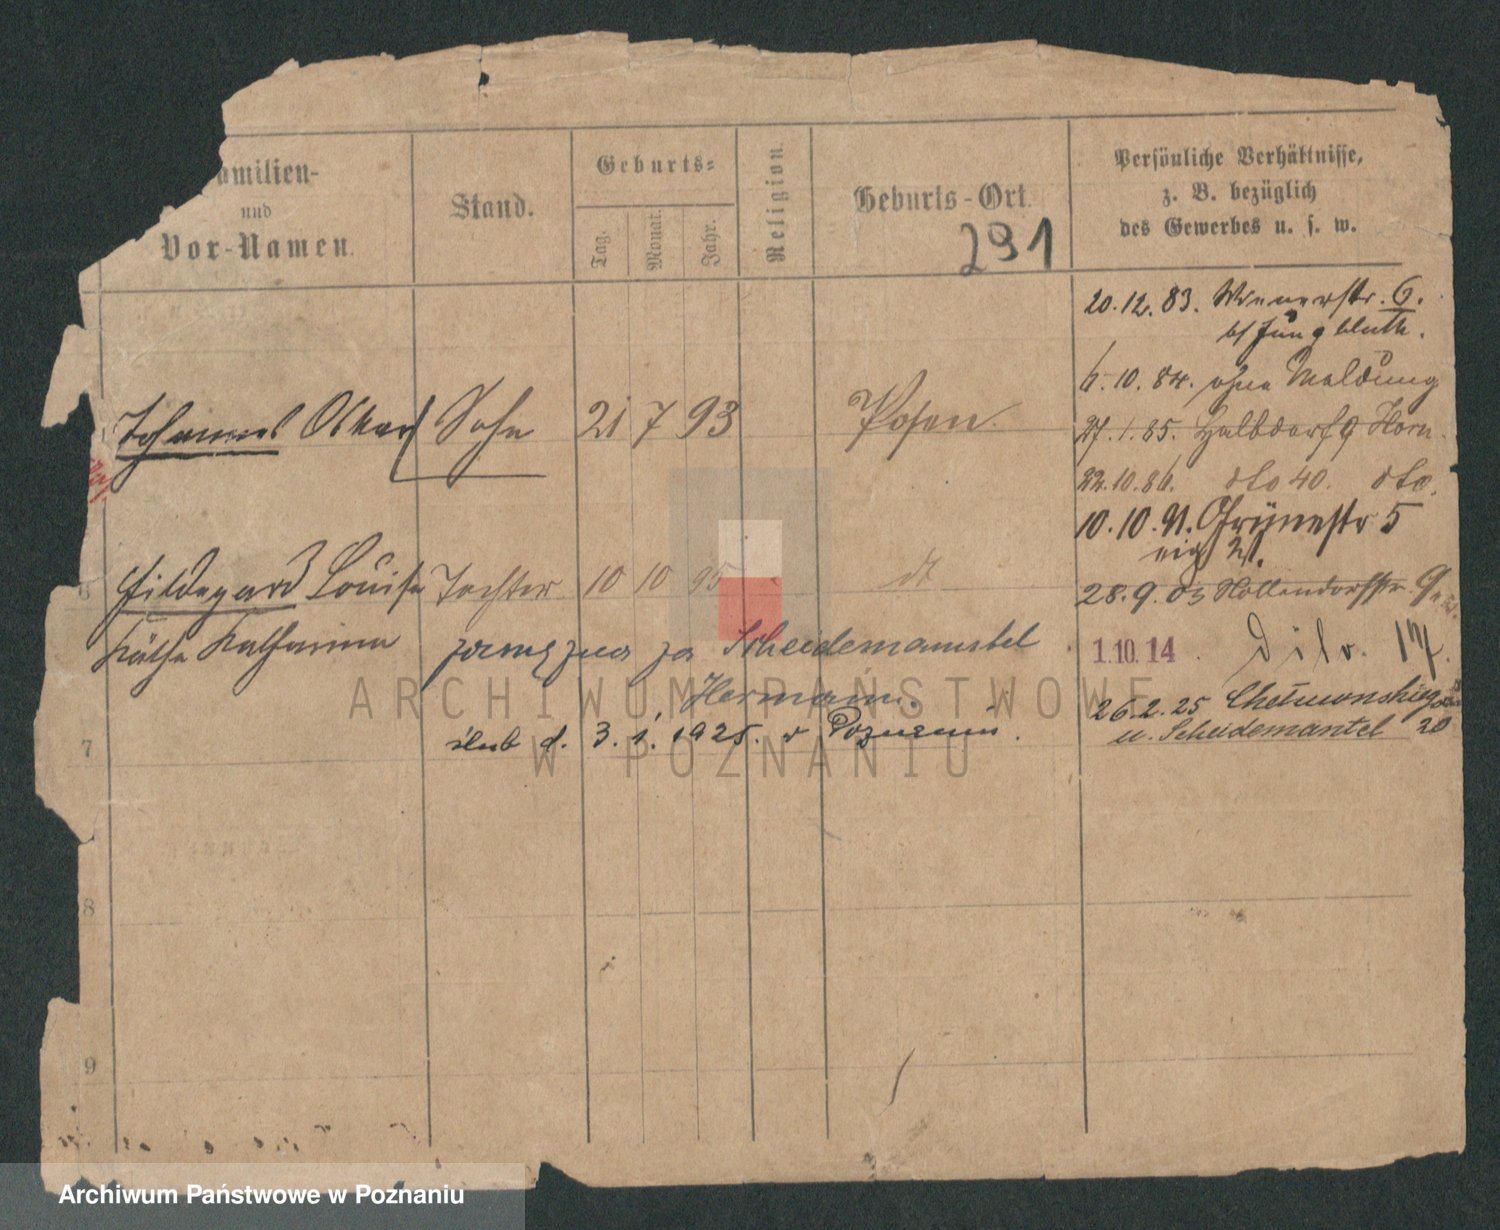 amilien-
und
Vor-Namen.
Stand.
Geburts-
Tag.
Monat.
Jahr.
Religion.
Geburts-Ort.
291
Persönliche Verhältnisse,
z. B. bezüglich
des Gewerbes u. s. w.
20.12.83. Wienerstr. 6.
b/ Jungbluth.
6.10.84. ohne Meldung
27.1.85. Halbdorf 9 Horn.
22.10.86. dto 40. dto.
10.10.91. Grünestr 5
28.9.03 Hollendorffstr 9
1.10.14 dito. 17.
26.2.25
u. Scheidemantel 20
Johannes Oskar Sohn 21 7 93 Posen.
6 Hildegard Louise Tochter 10 10 95 dt
Käthe Katharina
zamężna za Scheidemanntel
Hermann.
ślub d. 3.1.1925. w Poznaniu.
7
8
9
ARCHIWUM PAŃSTWOWE
W POZNANIU
Archiwum Państwowe w Poznaniu